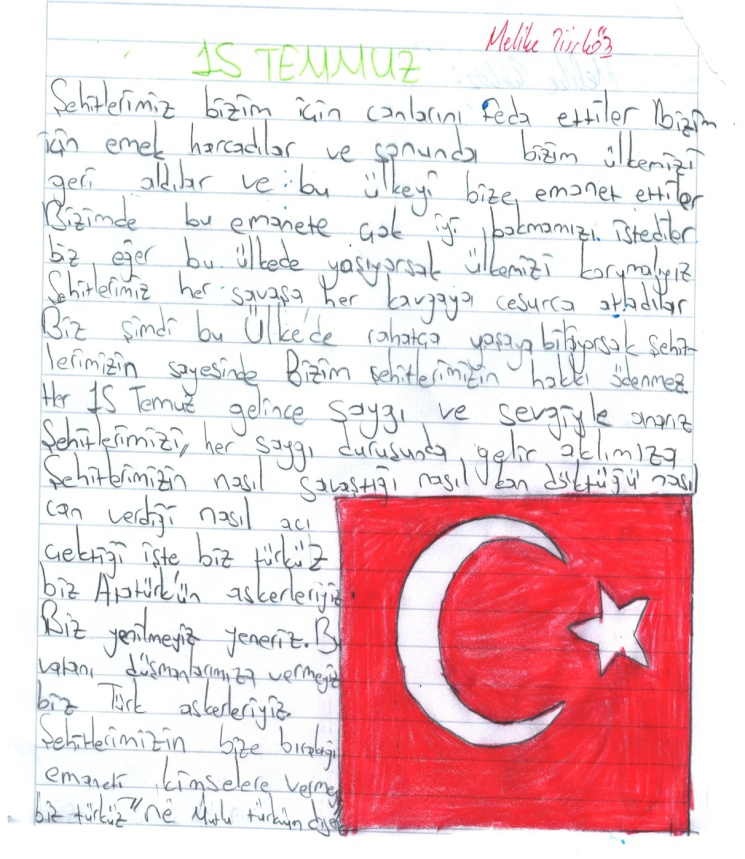 Melike Türköz
15 TEMMUZ
Şehitlerimiz bizim için canlarını feda ettiler bizim
için emek harcadılar ve sonunda bizim ülkemizi
geri aldılar ve bu ülkeyi bize emanet ettiler
Bizimde bu emanete çok iyi bakmamızı istediler
biz eğer bu ülkede yaşıyorsak ülkemizi korumalıyız
Şehitlerimiz her savaşa her kavgaya cesurca atladılar
Biz şimdi bu Ülke'de rahatça yaşaya biliyorsak şehit-
lerimizin sayesinde Bizim şehitlerimizin hakkı ödenmez
Her 15 Temuz gelince saygı ve sevgiyle anarız
Şehitlerimizi, her saygı duruşunda gelir aklımıza
Şehitlerimizin nasıl savaştığı nasıl kan döktüğü nasıl
can verdiği nasıl acı
çektiği işte biz türküz
biz Atatürk'ün askerleriyiz.
Biz yenilmeyiz yeneriz. B
vatanı düşmanlarımıza vermeyiz
biz Türk askerleriyiz.
Şehitlerimizin bize bıraktığı
emaneti kimselere verme
biz türküz "ne Mutlu türküm diye